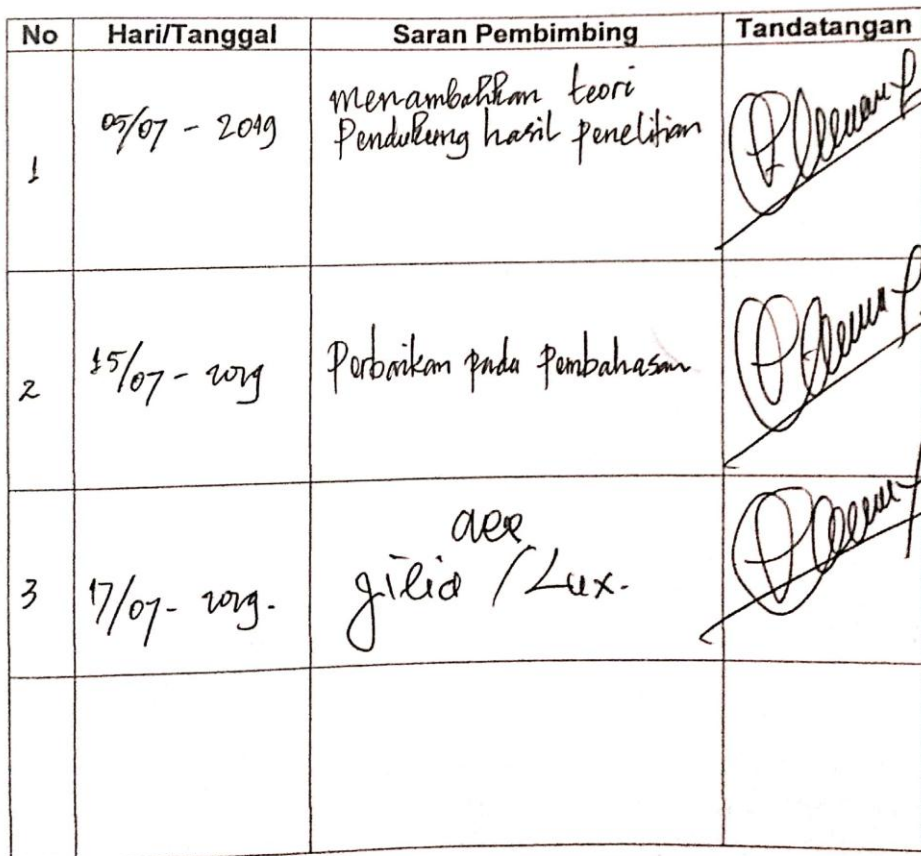 No Hari/Tanggal Saran Pembimbing Tandatangan
1 05/07 - 2019 menambahkan teori
Pendukung hasil penelitian
2 15/07 - 2019 Perbaikan pada Pembahasan
3 17/07 - 2019. acc
/ Lux.